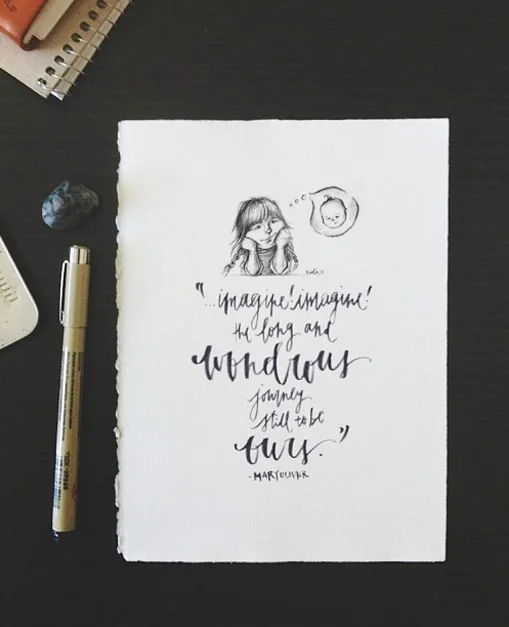 "...imagine! imagine!
the long and
wondrous
journey
still to be
ours."
-MARY OLIVER